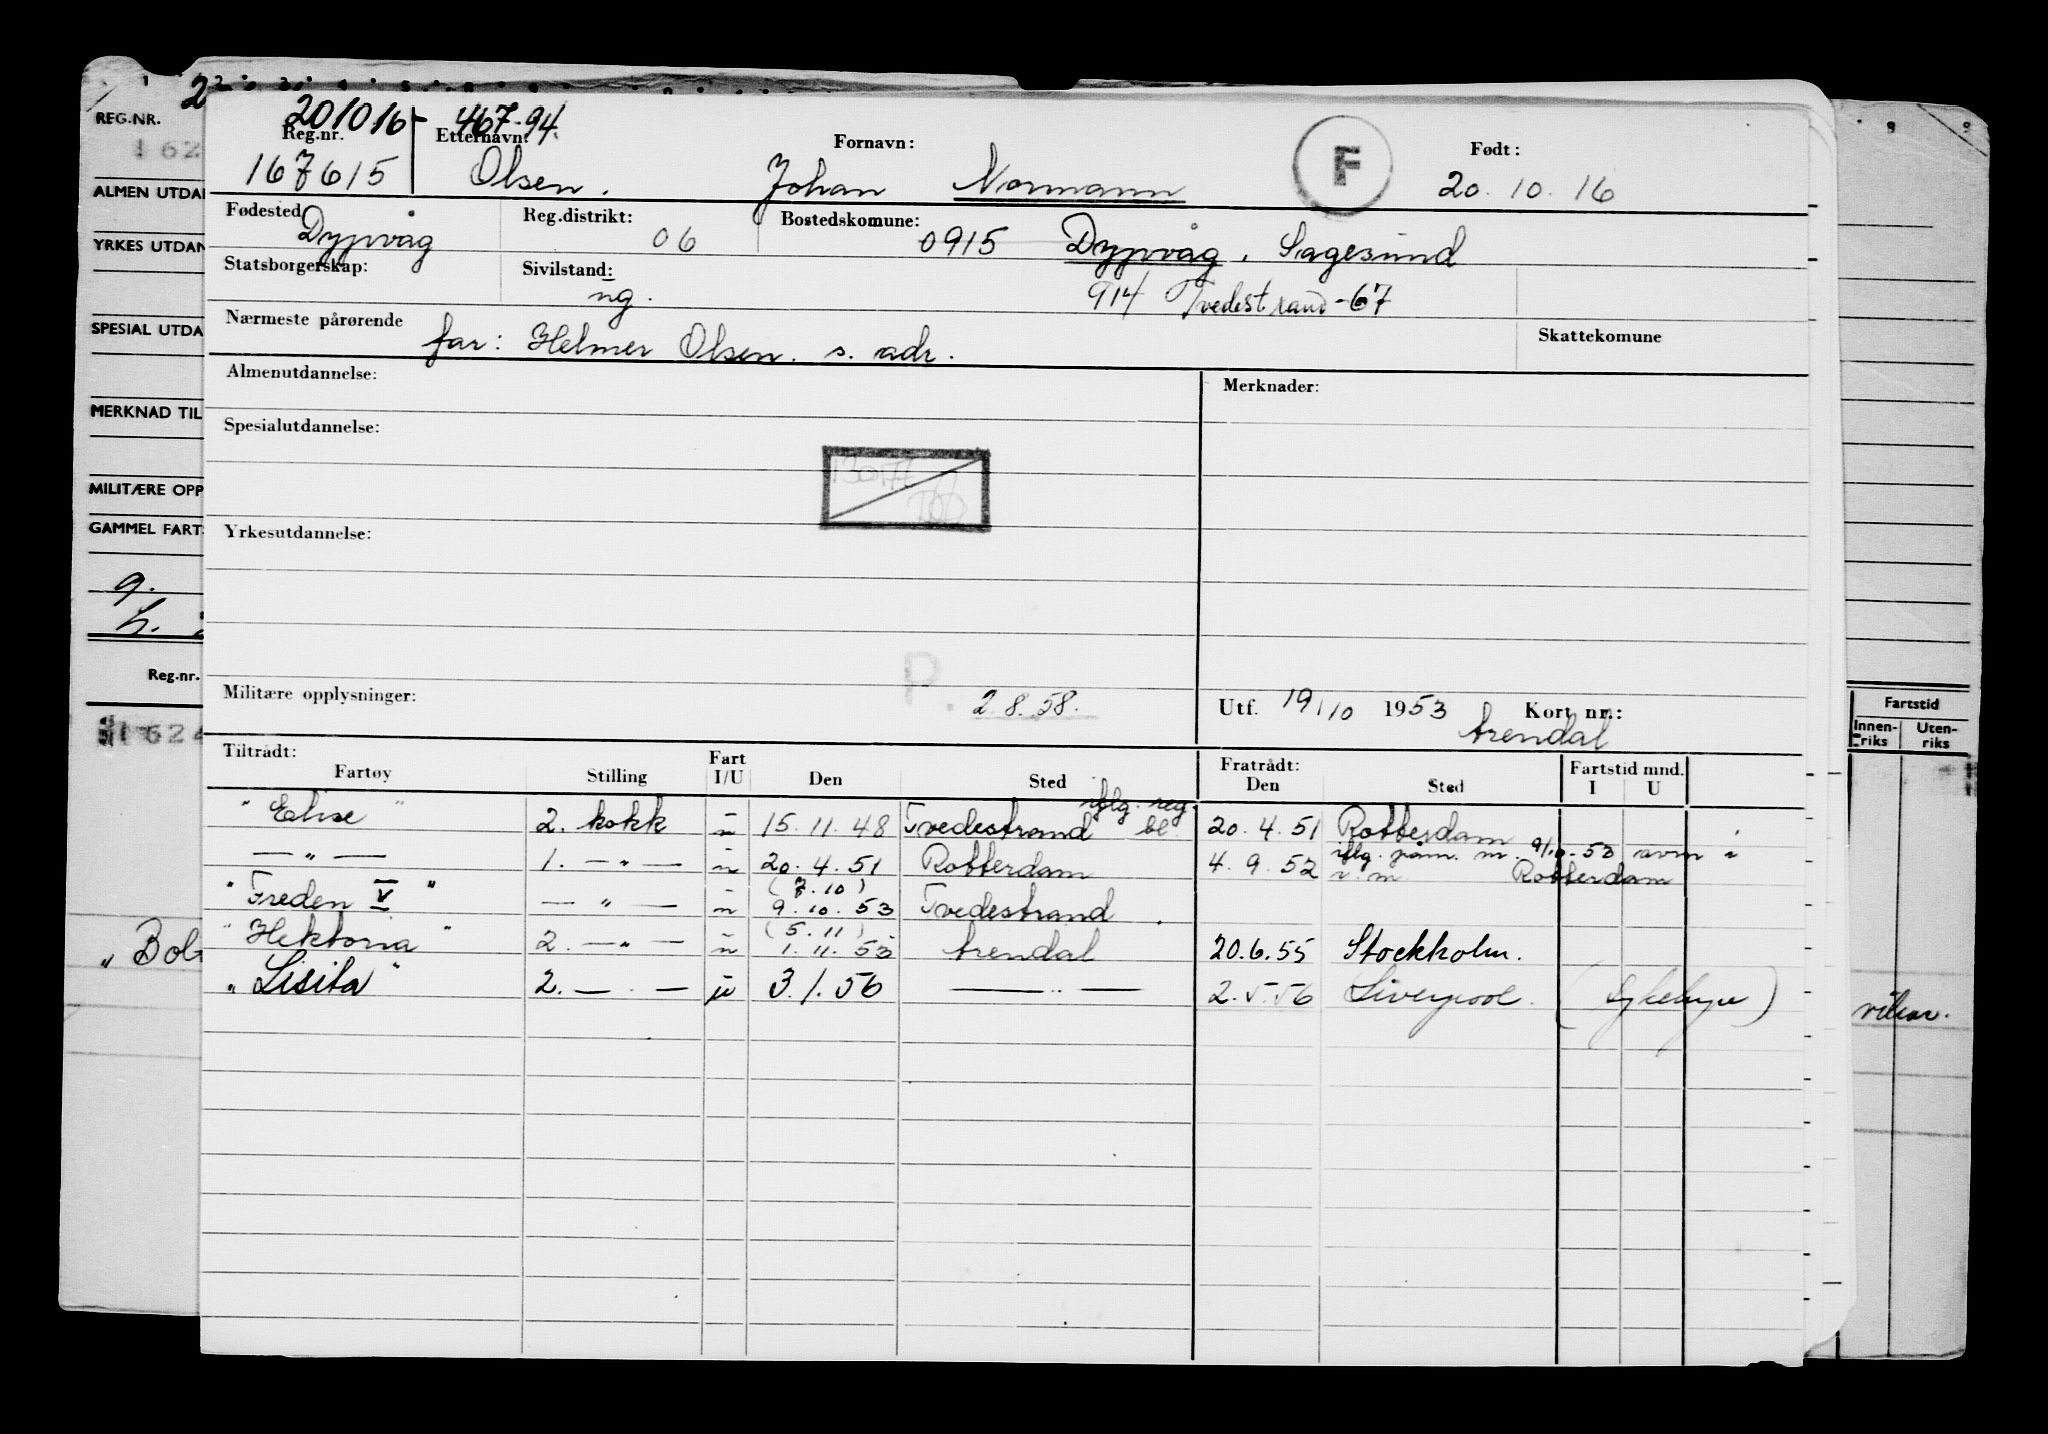 201016- 467-94.
REG.NR. Reg.nr. Etternavn: Fornavn: F Født:
162
167615 Olsen. Johan Normann 20.10.16
ALMEN UTDAN
Fødested Dypvåg Reg.distrikt: 06 Bostedskomune: 0915 Dypvåg, Sagesund
YRKES UTDAN
Statsborgerskap: Sivilstand: ug. 914 Tvedestrand -67
SPESIAL UTDA
Nærmeste pårørende far: Helmer Olsen. s. adr. Skattekomune
Almenutdannelse: Merknader:
MERKNAD TIL
Spesialutdannelse:
MILITÆRE OPP
GAMMEL FART
Yrkesutdannelse:
Reg.nr. P.
Militære opplysninger: 2.8.58. Utf. 19/10 1953 Kort nr.:
Arendal
Fartstid
Innen-riks Uten-riks
1624
Tiltrådt: Fart Fratrådt: Fartstid mnd.
Fartøy Stilling I/U Den Sted Den Sted I U
" Elise " 2. kokk u 15.11.48 Tvedestrand iflg. reg. bl. 20.4.51 Rotterdam
— " — 1. — " — u 20.4.51 Rotterdam 4.9.52 iflg. påm. m. 9/10-53 avm i
r.m. Rotterdam
" Freden V " — " — u (7.10) 9.10.53 Tvedestrand.
" Hektoria " 2. — " — u (5.11) 1.11.53 Arendal 20.6.55 Stockholm.
„ Bol
" Lisita " 2. — " — u 3.1.56 — " — 2.5.56 Liverpool. ( Sykehus )
vikar.